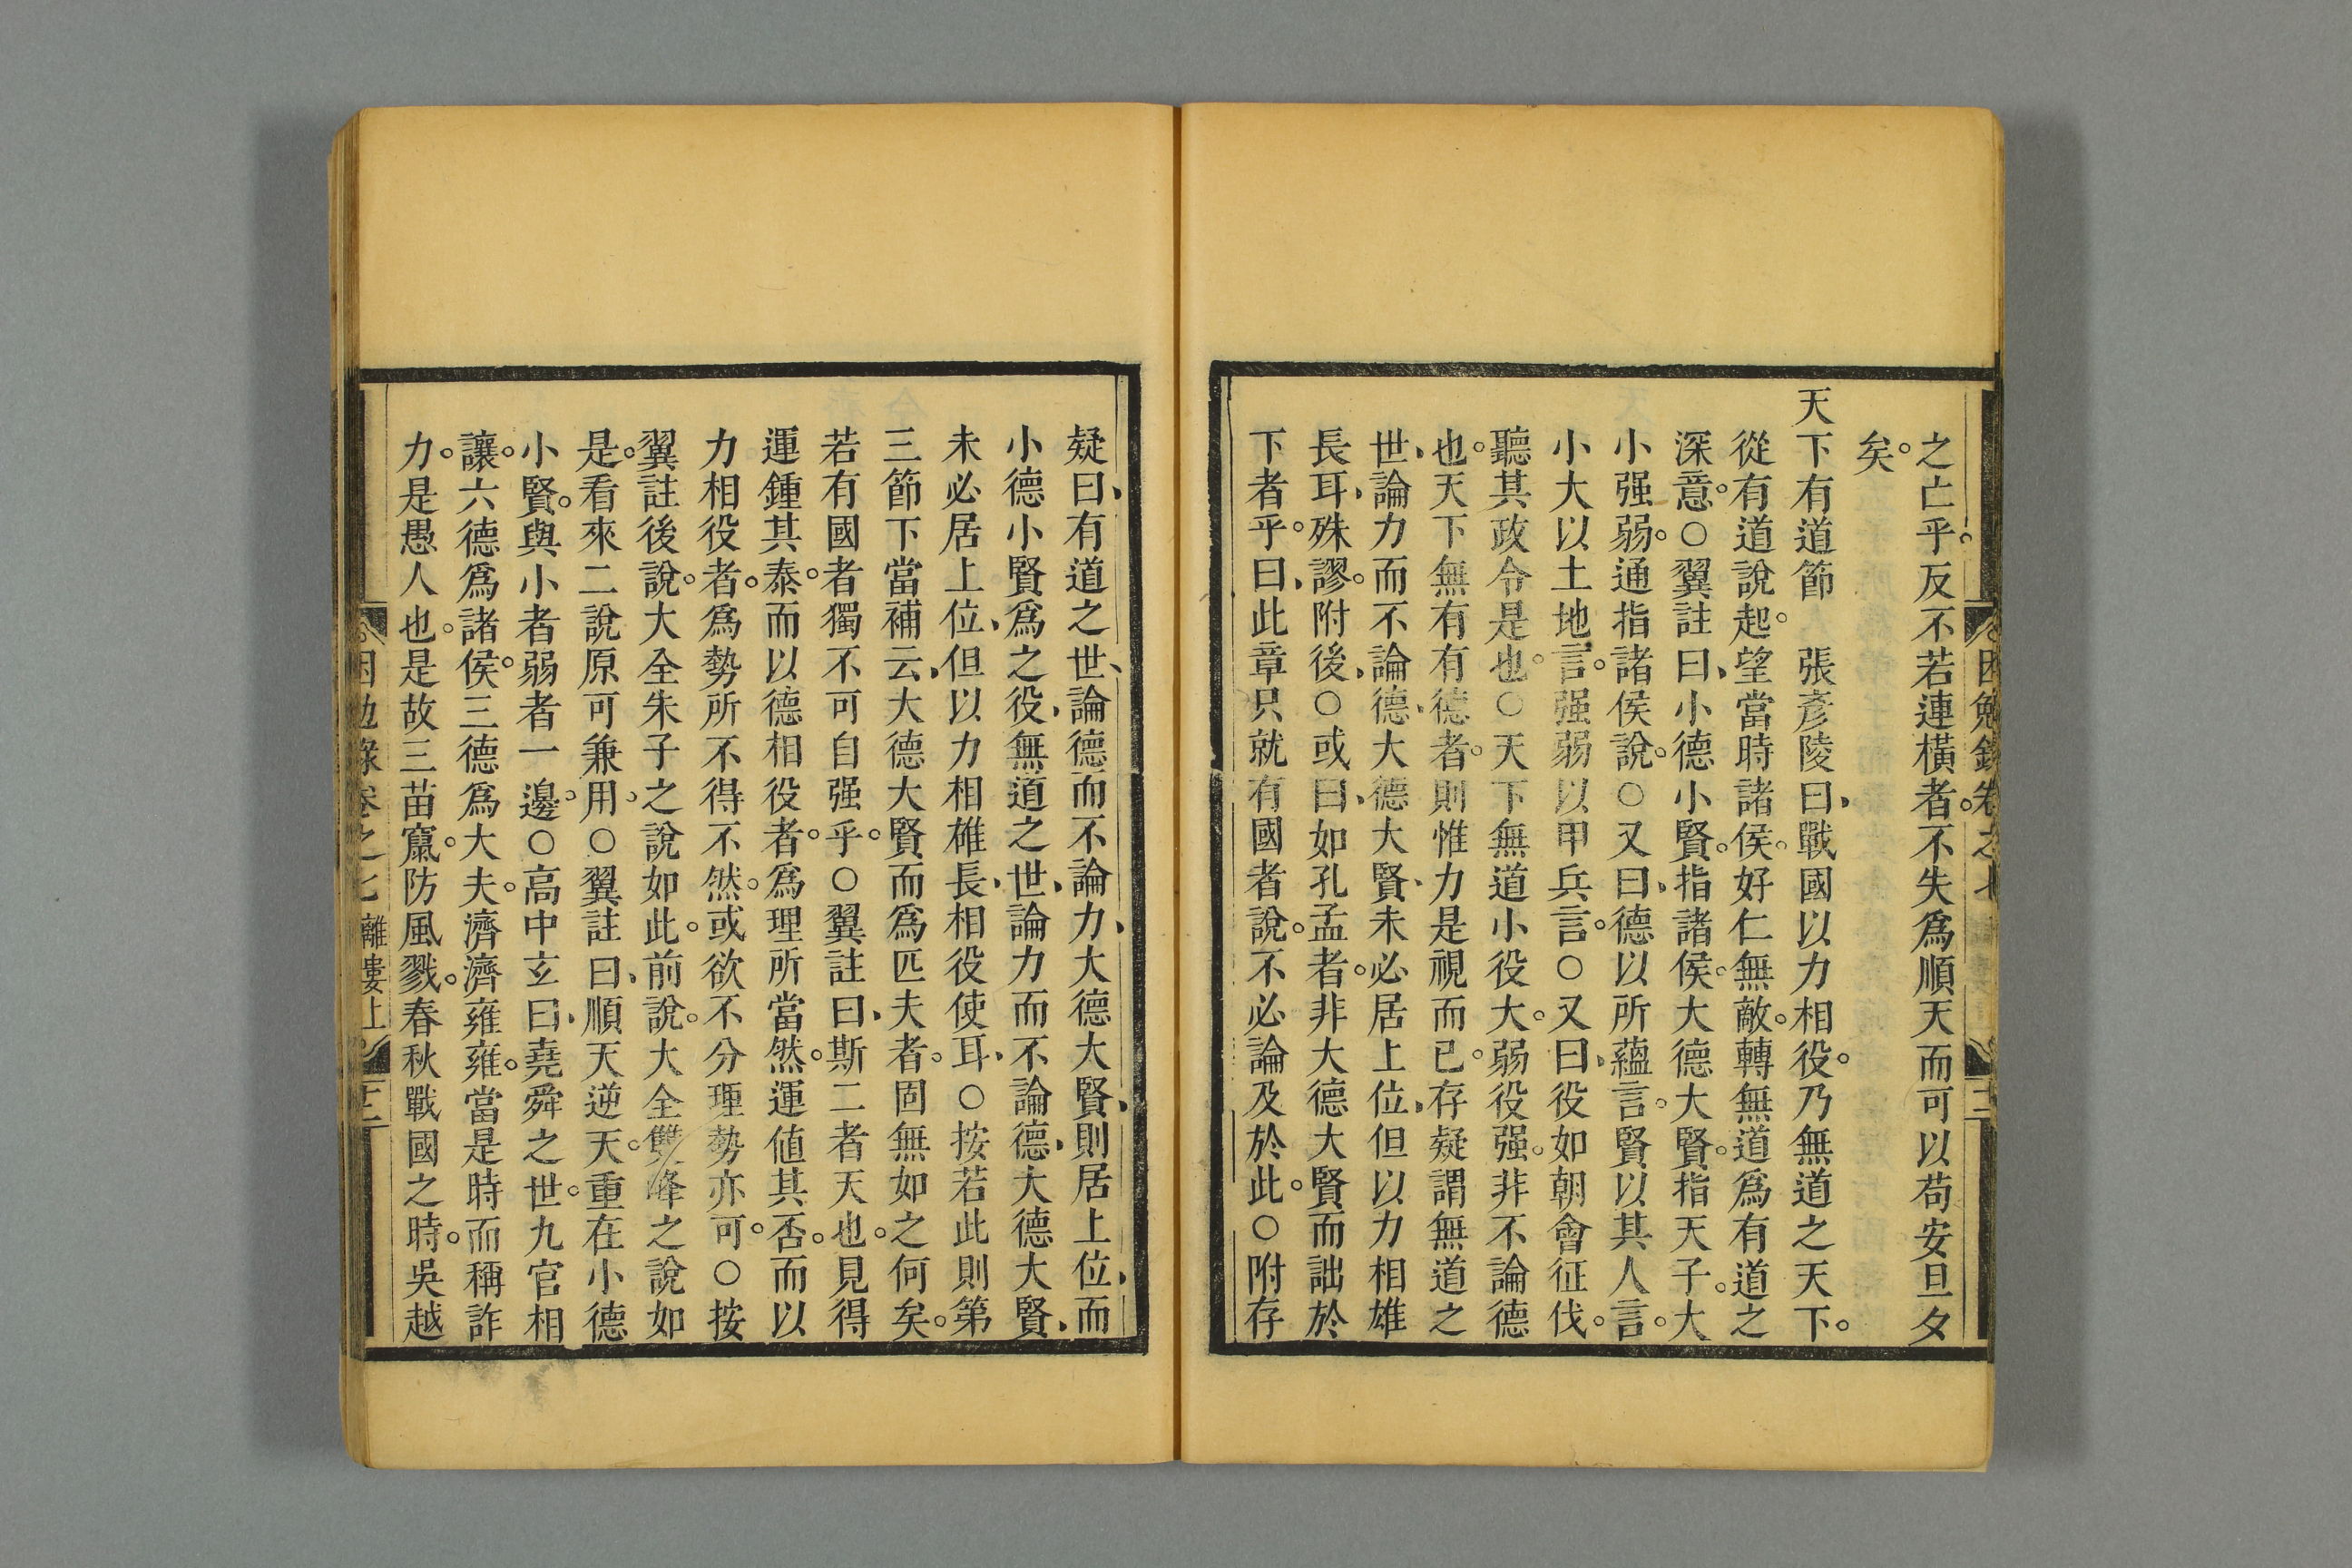 之亡乎。反不若連橫者。不失爲順天而可以苟安旦夕
矣。
天下有道節　張彥陵曰、戰國以力相役。乃無道之天下。
從有道說起。望當時諸侯。好仁無敵。轉無道爲有道之
深意。○翼註曰、小德小賢。指諸侯。大德大賢。指天子。大
小强弱。通指諸侯說。○又曰、德以所蘊言。賢以其人言。
小大以土地言。强弱以甲兵言。○又曰、役如朝會征伐。
聽其政令是也。○天下無道小役大。弱役强。非不論德
也。天下無有有德者。則惟力是視而已。存疑謂無道之
世、論力而不論德、大德大賢、未必居上位、但以力相雄
長耳、殊謬。附後、○或曰、如孔孟者。非大德大賢而詘於
下者乎。曰、此章只就有國者說。不必論及於此。○附存
疑曰、有道之世、論德而不論力、大德大賢、則居上位、而
小德小賢爲之役、無道之世、論力而不論德、大德大賢、
未必居上位、但以力相雄長、相役使耳、○按若此則第
三節下當補云、大德大賢而爲匹夫者。固無如之何矣。
若有國者獨不可自强乎。○翼註曰、斯二者天也。見得
運鍾其泰。而以德相役者。爲理所當然。運値其否。而以
力相役者。爲勢所不得不然。或欲不分理勢亦可。○按
翼註後說。大全朱子之說如此。前說。大全雙峰之說如
是。看來二說原可兼用。○翼註曰、順天逆天。重在小德
小賢。與小者弱者一邊。○高中玄曰、堯舜之世。九官相
讓。六德爲諸侯。三德爲大夫。濟濟雍雍。當是時而稱詐
力。是愚人也。是故三苗竄。防風戮。春秋戰國之時。吳越
困勉錄卷之七　離婁上　十二